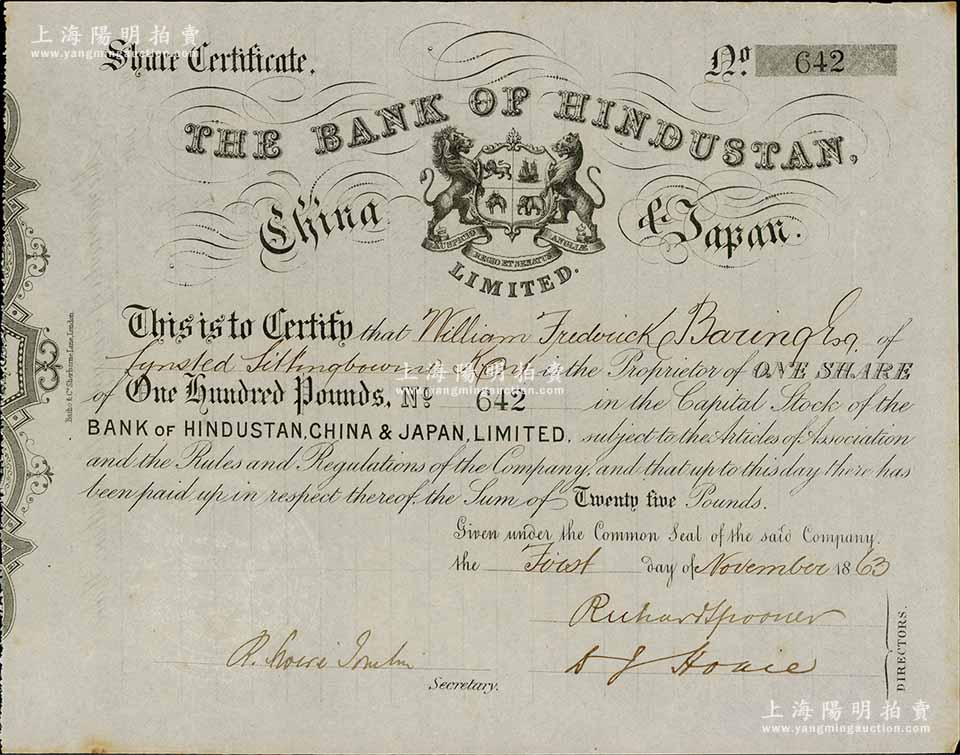 上海陽明拍賣
www.yangmingauction.com
Share Certificate.
No. 642
THE BANK OF HINDUSTAN,
China & Japan.
AUSPICIO REGIO ET SENATUS ANGLIÆ
LIMITED.
This is to Certify that William Fredrick Baring Esq. of
Lynsted Sittingbourne Kent is the Proprietor of ONE SHARE
of One Hundred Pounds, No 642 in the Capital Stock of the
BANK OF HINDUSTAN, CHINA & JAPAN, LIMITED, subject to the Articles of Association
and the Rules and Regulations of the Company, and that up to this day there has
been paid up in respect thereof, the Sum of Twenty five Pounds.
Given under the Common Seal of the said Company.
the First day of November 1863
Richard Spooner
R.
Secretary.
DIRECTORS.
上海陽明拍賣
www.yangmingauction.com
上海陽明拍賣
www.yangmingauction.com